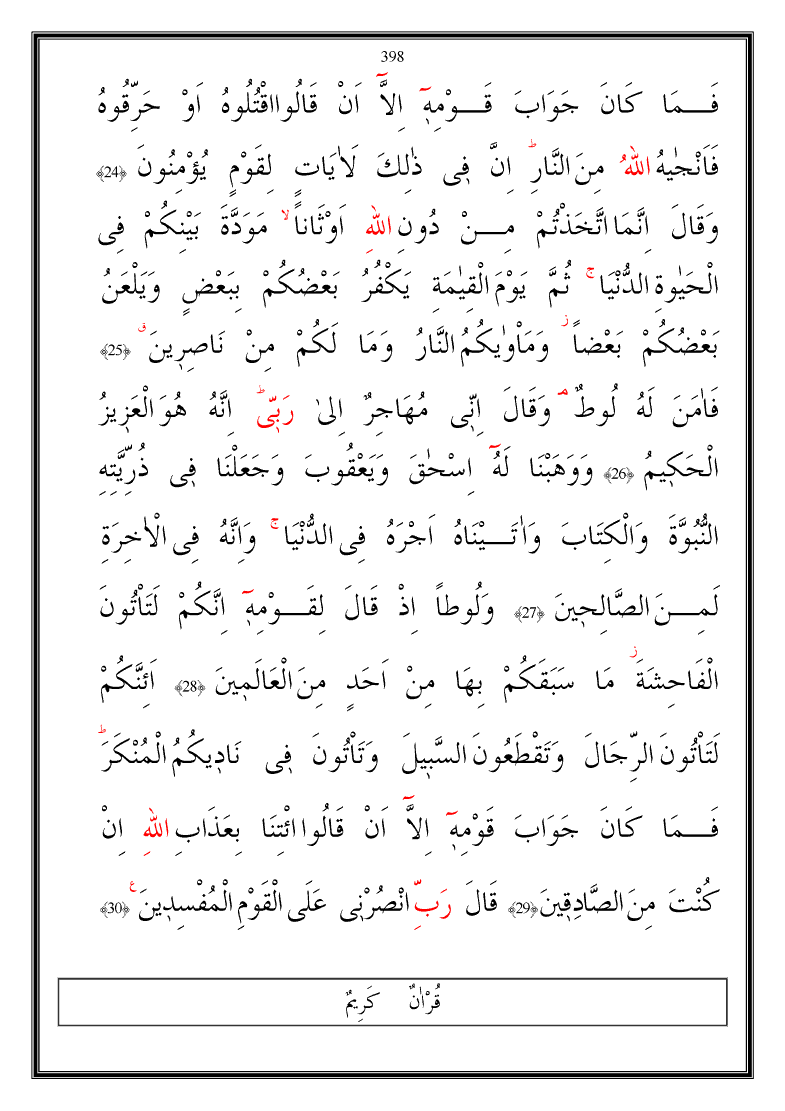 398
فَـــمَا كَانَ جَوَابَ قَـــوْمِه۪ٓ اِلَّٓا اَنْ قَالُوا اقْتُلُوهُ اَوْ حَرِّقُوهُ
فَاَنْجٰيهُ اللّٰهُ مِنَ النَّارِۜ اِنَّ ف۪ى ذٰلِكَ لَاٰيَاتٍ لِقَوْمٍ يُؤْمِنُونَ ﴿24﴾
وَقَالَ اِنَّمَا اتَّخَذْتُمْ مِـــنْ دُونِ اللّٰهِ اَوْثَاناًۙ مَوَدَّةَ بَيْنِكُمْ فِى
الْحَيٰوةِ الدُّنْيَاۚ ثُمَّ يَوْمَ الْقِيٰمَةِ يَكْفُرُ بَعْضُكُمْ بِبَعْضٍ وَيَلْعَنُ
بَعْضُكُمْ بَعْضاًۘ وَمَاْوٰيكُمُ النَّارُ وَمَا لَكُمْ مِنْ نَاصِر۪ينَۗ ﴿25﴾
فَاٰمَنَ لَهُ لُوطٌۢ وَقَالَ اِنّ۪ى مُهَاجِرٌ اِلٰى رَبّ۪ىۜ اِنَّهُ هُوَ الْعَز۪يزُ
الْحَك۪يمُ ﴿26﴾ وَوَهَبْنَا لَهُٓ اِسْحٰقَ وَيَعْقُوبَ وَجَعَلْنَا ف۪ى ذُرِّيَّتِهِ
النُّبُوَّةَ وَالْكِتَابَ وَاٰتَـــيْنَاهُ اَجْرَهُ فِى الدُّنْيَاۚ وَاِنَّهُ فِى الْاٰخِرَةِ
لَمِـــنَ الصَّالِح۪ينَ ﴿27﴾ وَلُوطاً اِذْ قَالَ لِقَـــوْمِه۪ٓ اِنَّكُمْ لَتَاْتُونَ
الْفَاحِشَةَۘ مَا سَبَقَكُمْ بِهَا مِنْ اَحَدٍ مِنَ الْعَالَم۪ينَ ﴿28﴾ اَئِنَّكُمْ
لَتَاْتُونَ الرِّجَالَ وَتَقْطَعُونَ السَّب۪يلَ وَتَاْتُونَ ف۪ى نَاد۪يكُمُ الْمُنْكَرَۜ
فَـــمَا كَانَ جَوَابَ قَوْمِه۪ٓ اِلَّٓا اَنْ قَالُوا ائْتِنَا بِعَذَابِ اللّٰهِ اِنْ
كُنْتَ مِنَ الصَّادِق۪ينَ ﴿29﴾ قَالَ رَبِّ انْصُرْن۪ى عَلَى الْقَوْمِ الْمُفْسِد۪ينَۚ ﴿30﴾
قُرْاٰنٌ كَرِيمٌ